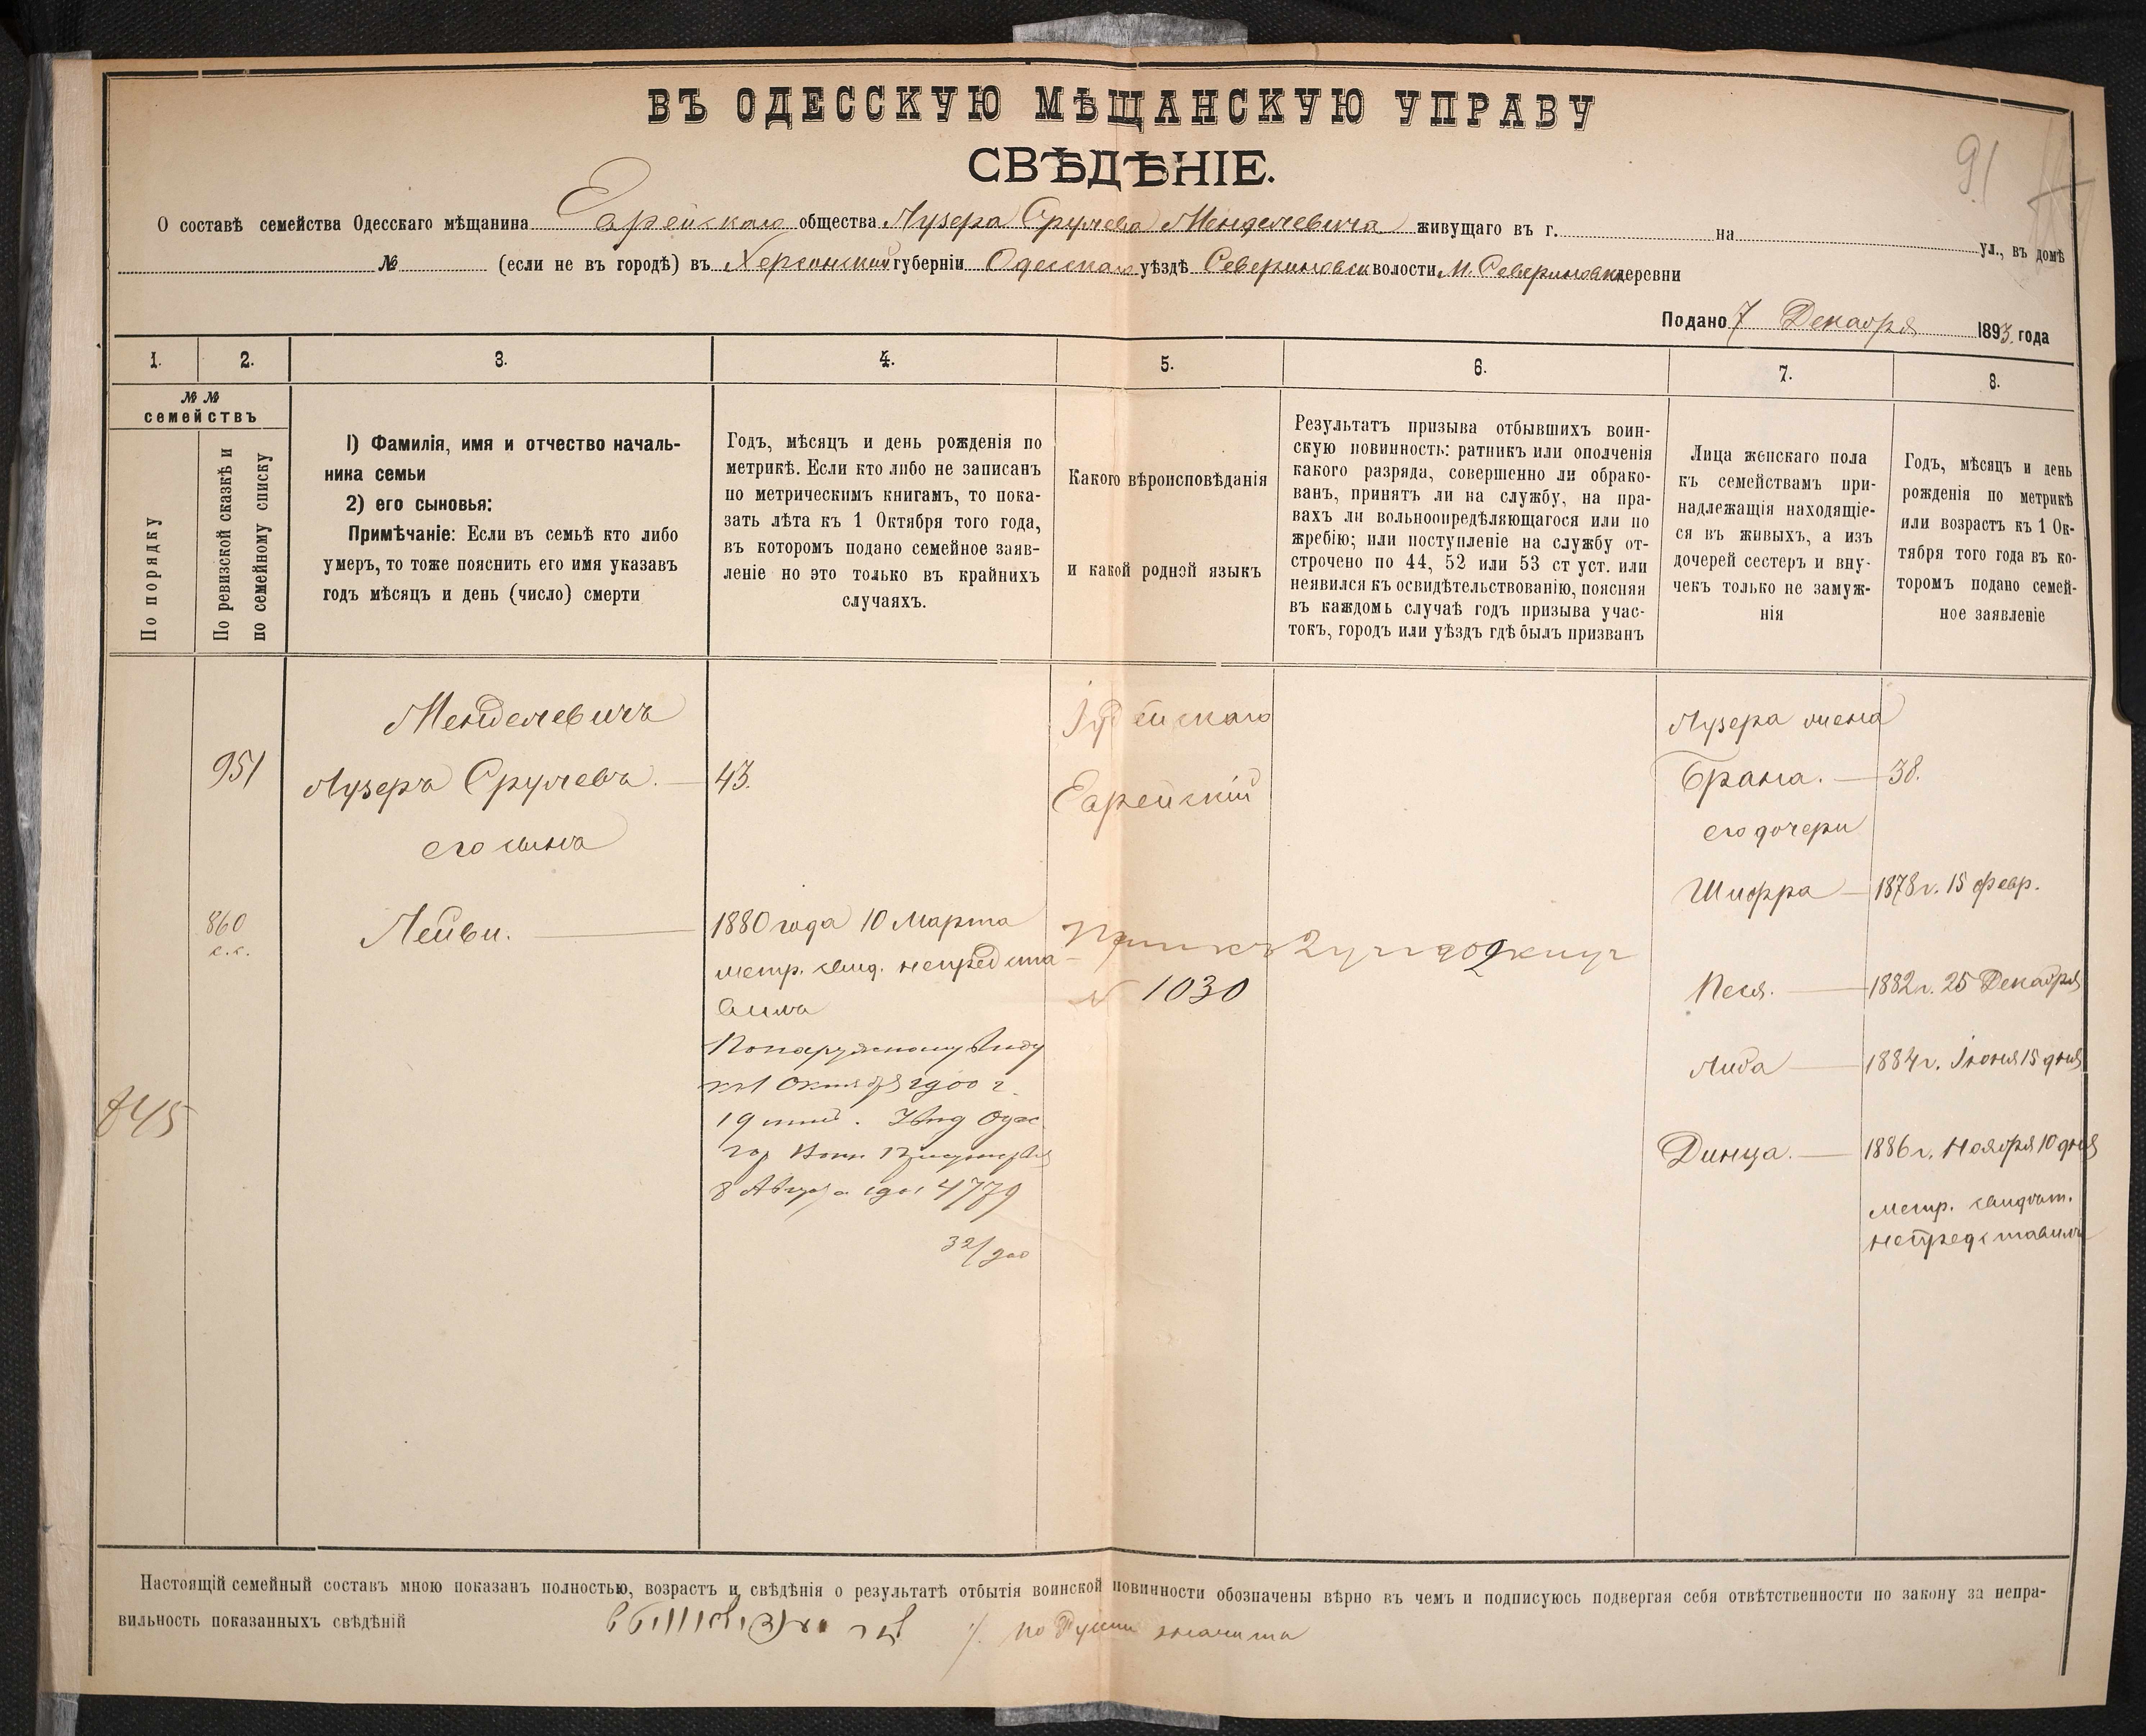 ВЪ ОДЕССКУЮ МѢЩАНСКУЮ УПРАВУ
СВѢДѢНІЕ.
91
О составѣ семейства Одесскаго мѣщанина Еврейскаго общества Лузера Срулева Менделевича живущаго въ г. на ул., въ домѣ
№ (если не въ городѣ) въ Херсонской губерніи Одесскаго уѣздѣ Севериновск волости М. Севериновка деревни
Подано 7 Декабря 1893 года
1. 2. 3. 4. 5. 6. 7. 8.
№ №
семействъ
По порядку
По ревизской сказкѣ и
по семейному списку
1) Фамилія, имя и отчество началь-
ника семьи
2) его сыновья:
Примѣчаніе: Если въ семьѣ кто либо
умеръ, то тоже пояснить его имя указавъ
годъ мѣсяцъ и день (число) смерти
Годъ, мѣсяцъ и день рожденія по
метрикѣ. Если кто либо не записанъ
по метрическимъ книгамъ, то пока-
зать лѣта къ 1 Октября того года,
въ которомъ подано семейное заяв-
леніе но это только въ крайнихъ
случаяхъ.
Какого вѣроисповѣданія
и какой родной языкъ
Результатъ призыва отбывшихъ воин-
скую повинность: ратникъ или ополченія
какого разряда, совершенно ли обрако-
ванъ, принятъ ли на службу, на пра-
вахъ ли вольноопредѣляющагося или по
жребію; или поступленіе на службу от-
строчено по 44, 52 или 53 ст уст. или
неявился къ освидѣтельствованію, поясняя
въ каждомъ случаѣ годъ призыва учас-
токъ, городъ или уѣздъ гдѣ былъ призванъ
Лица женскаго пола
къ семействамъ при-
надлежащія находящіе-
ся въ живыхъ, а изъ
дочерей сестеръ и вну-
чекъ только не замуж-
нія
Годъ, мѣсяцъ и день
рожденія по метрикѣ
или возрастъ къ 1 Ок-
тября того года въ ко-
торомъ подано семей-
ное заявленіе
Менделевичъ
951 Лузеръ Срулевъ. 43.
его сынъ
860
с.с.
Лейви.
1880 года 10 Марта
метр. свид. непредста-
вилъ
По наружному виду
къ 1 Октября 1900 г.
19 лѣтъ.
8 Августа 4779
32/900
845
Іудейскаго
Еврейскій
№ 1030
Лузера жена
Брана. 38.
его дочери
Шифра 1878 г. 15 февр.
Песя. 1882 г. 25 Декабря
Либа 1884 г. Іюня 15 дня
Динца. 1886 г. Ноября 10 дня
метр. свидѣт.
непредставилъ
Настоящій семейный составъ мною показанъ полностью, возрастъ и свѣдѣнія о результатѣ отбытія воинской повинности обозначены вѣрно въ чемъ и подписуюсь подвергая себя отвѣтственности по закону за непра-
вильность показанныхъ свѣдѣній